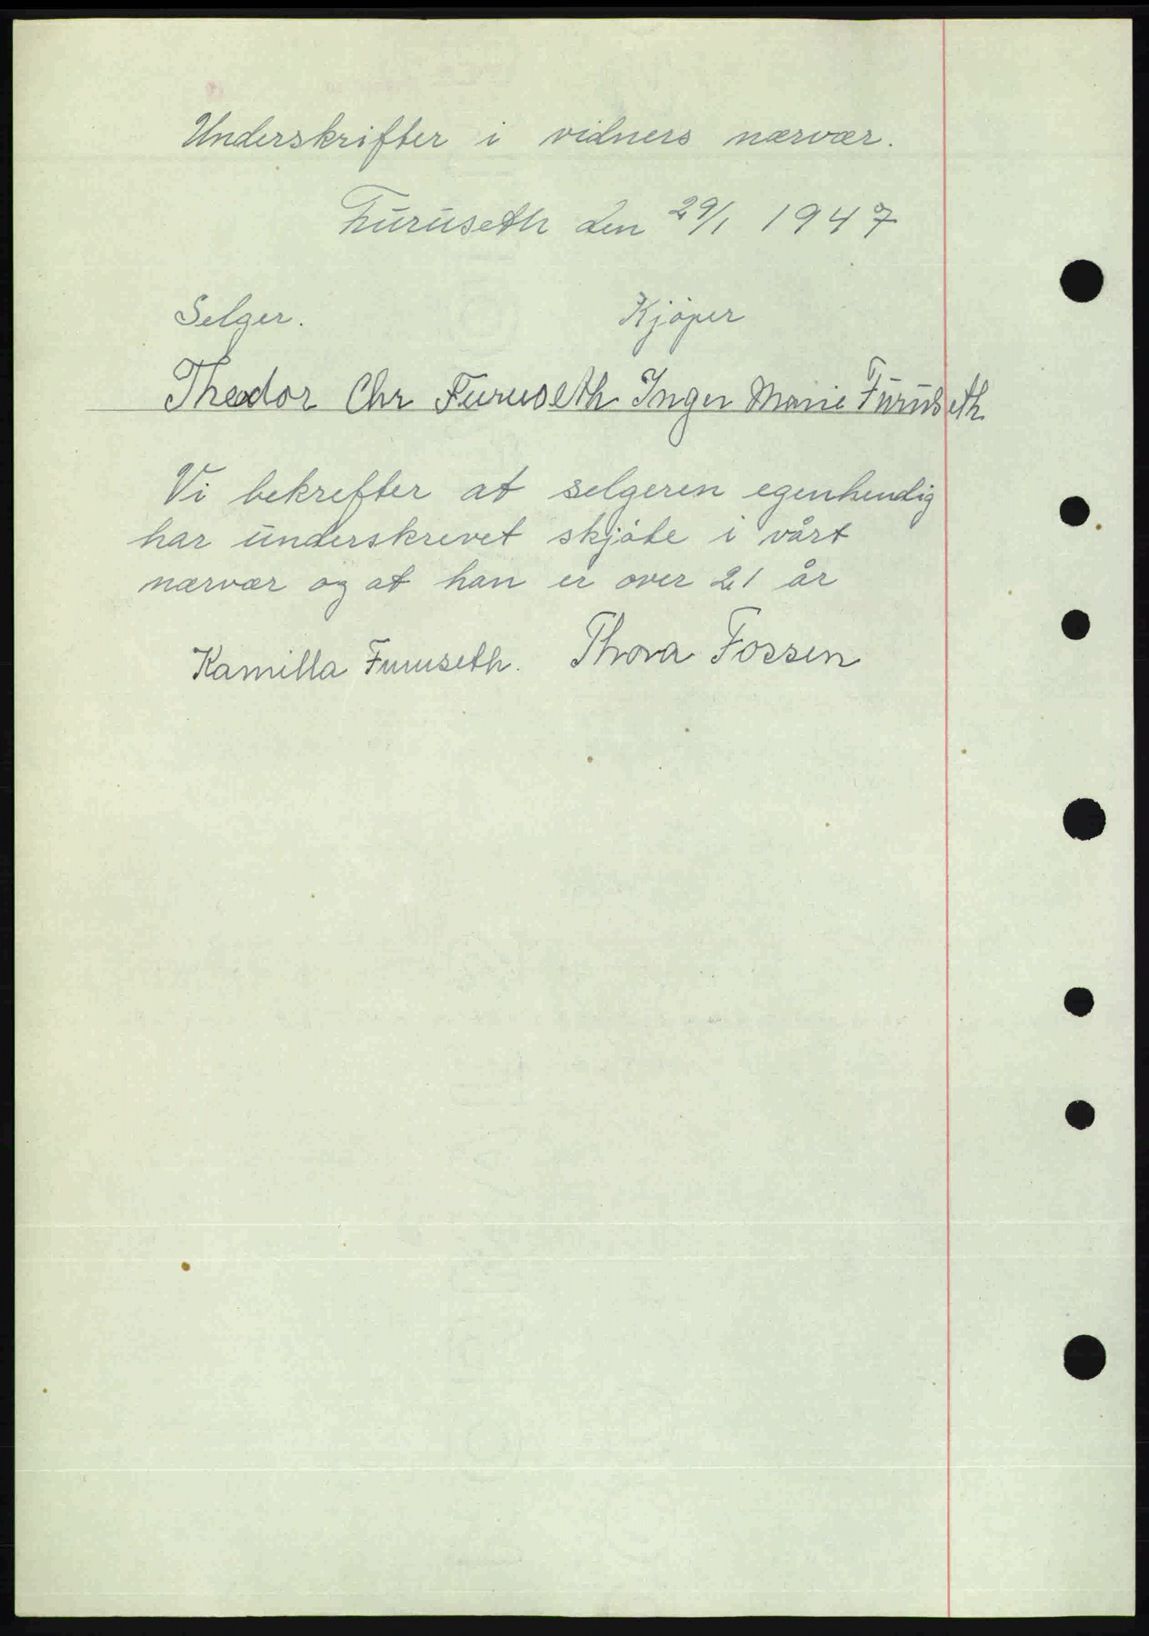 Underskrifter i vidners nærvær.
Furuseth den 29/1 1947
Selger.
Kjøper
Thedor Chr Furuseth Inger Marie Furuseth
Vi bekrefter at selgeren egenhendig
har underskrevet skjøte i vårt
nærvær og at han er over 21 år
Kamilla Furuseth. Thora Fossen